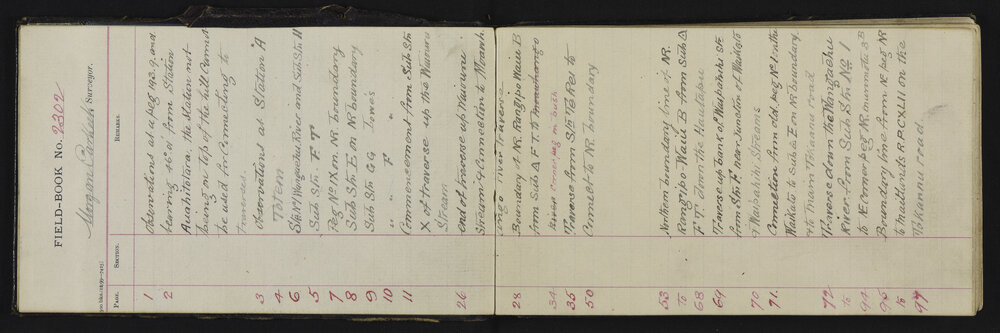 FIELD-BOOK No. 2302
Morgan Carkeek Surveyor.
PAGE. SECTION. REMARKS.
1 Observations at a peg 193.9 and
2 bearing 46°01' from Station
Auahitotara, the Station not
being on top of the hill Cannot
be used for Connecting to
Traverses.
3 Observations at Station A
4 Totem
6 Stn No 1 Wangaehu River and Sub Stn H
5 Sub Stn F T
7 Peg No IX on NR boundary
8 Sub Stn E on NR boundary
9 Sub Stn GG Lowes
10 " " F "
11 Commencement from Sub Stn
X of traverse up the Waiouru
Stream
26 end of traverse up Waiouru
Stream & Connection to Moawh
ango river Traverse
28 Boundary of NR. Rangipo Waiu B
from Sub Δ F.T. to Moawhango
34 River Commᵍ peg on bush
35 Traverse from Stn TeRei to
50 Connect to NR boundary
53 Northern boundary line of NR.
to Rangipo Waiu B from Sub Δ
68 F T down the Hautapu
69 Traverse up bank of Waipahihi Stm
from Stn F near Junction of Waikato
70 & Waipahihi Streams
71. Connection from old peg No 1 on the
Waikato to Sub Δ E on NR boundary,
& the Main Tokaanu road
72 Traverse down the Wangaehu
to River from Sub Stn No 1
94 to E Corner peg NR Murimotu 3B
95 Boundary line from NE peg NR
to of Maitlands R.P.CXLII on the
97 Tokaanu road